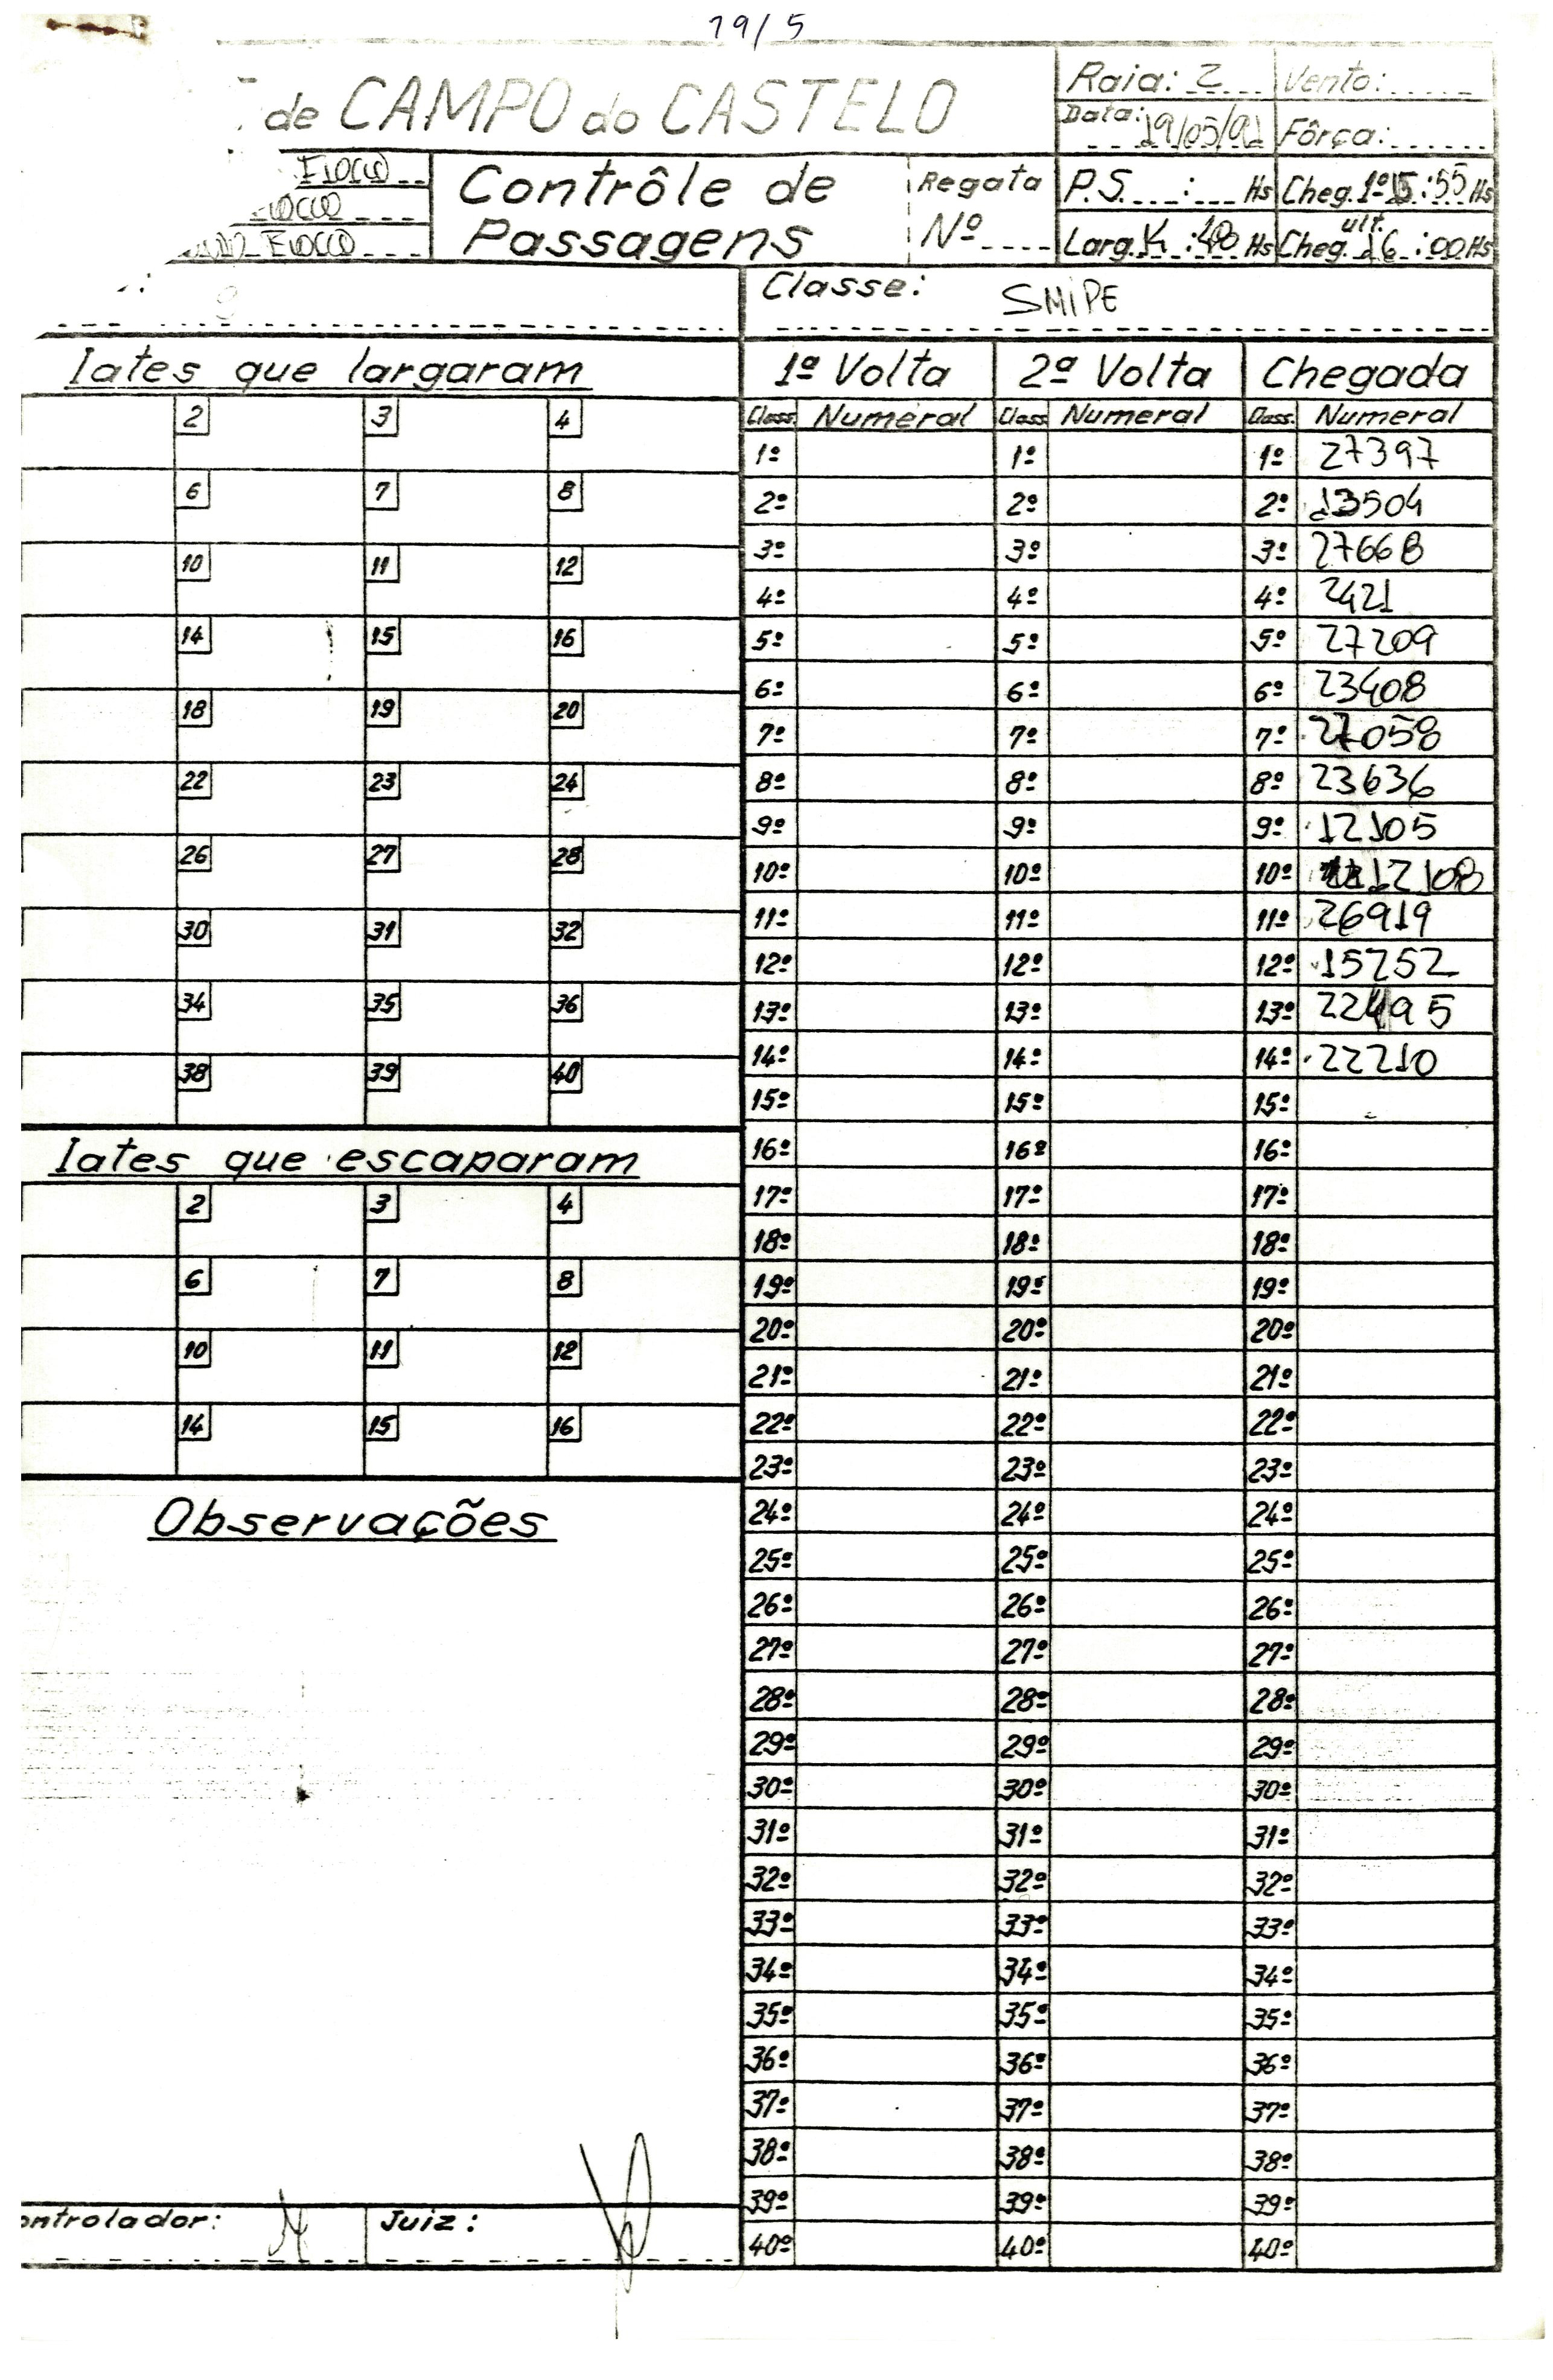 19/5
de CAMPO do CASTELO
Raia: 2 Vento:
Data: 19/05/91 Fôrça:
Contrôle de Passagens
Regata Nº
P.S. : Hs Cheg. 1º 15:55 Hs
Larg. : Hs ult. Cheg. 16:00 Hs
FIOCCO
FIOCCO
Classe: SNIPE
Iates que largaram
2 3 4
6 7 8
10 11 12
14 15 16
18 19 20
22 23 24
26 27 28
30 31 32
34 35 36
38 39 40
Iates que escaparam
2 3 4
6 7 8
10 11 12
14 15 16
Observações
Juiz:
1ª Volta 2ª Volta Chegada
Class. Numeral Class. Numeral Class. Numeral
1º 1º 1º 27397
2º 2º 2º 13504
3º 3º 3º 27668
4º 4º 4º 2421
5º 5º 5º 27209
6º 6º 6º 23408
7º 7º 7º 27058
8º 8º 8º 23636
9º 9º 9º 12105
10º 10º 10º 12108
11º 11º 11º 26919
12º 12º 12º 15252
13º 13º 13º 22495
14º 14º 14º 22210
15º 15º 15º
16º 16º 16º
17º 17º 17º
18º 18º 18º
19º 19º 19º
20º 20º 20º
21º 21º 21º
22º 22º 22º
23º 23º 23º
24º 24º 24º
25º 25º 25º
26º 26º 26º
27º 27º 27º
28º 28º 28º
29º 29º 29º
30º 30º 30º
31º 31º 31º
32º 32º 32º
33º 33º 33º
34º 34º 34º
35º 35º 35º
36º 36º 36º
37º 37º 37º
38º 38º 38º
39º 39º 39º
40º 40º 40º